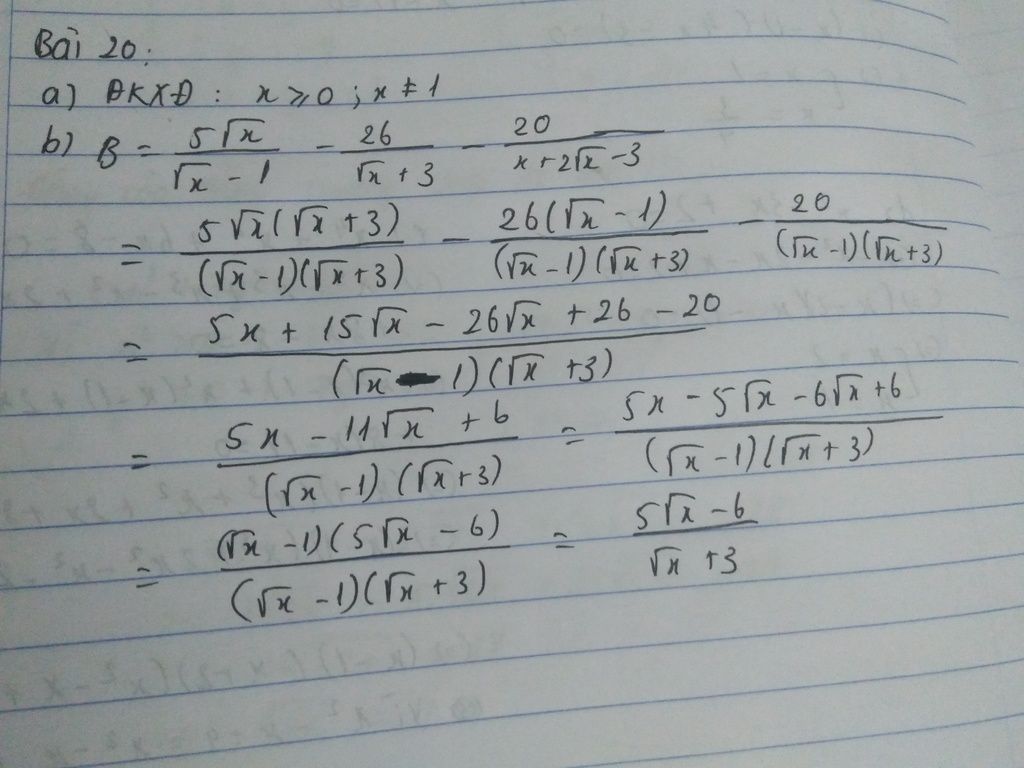 Bài 20:
a) ĐKXĐ : x ≥ 0 ; x ≠ 1
b) B = 5√x / (√x - 1) - 26 / (√x + 3) - 20 / (x + 2√x - 3)
= 5√x(√x + 3) / (√x - 1)(√x + 3) - 26(√x - 1) / (√x - 1)(√x + 3) - 20 / (√x - 1)(√x + 3)
= (5x + 15√x - 26√x + 26 - 20) / (√x - 1)(√x + 3)
= (5x - 11√x + 6) / (√x - 1)(√x + 3) = (5x - 5√x - 6√x + 6) / (√x - 1)(√x + 3)
= (√x - 1)(5√x - 6) / (√x - 1)(√x + 3) = (5√x - 6) / (√x + 3)